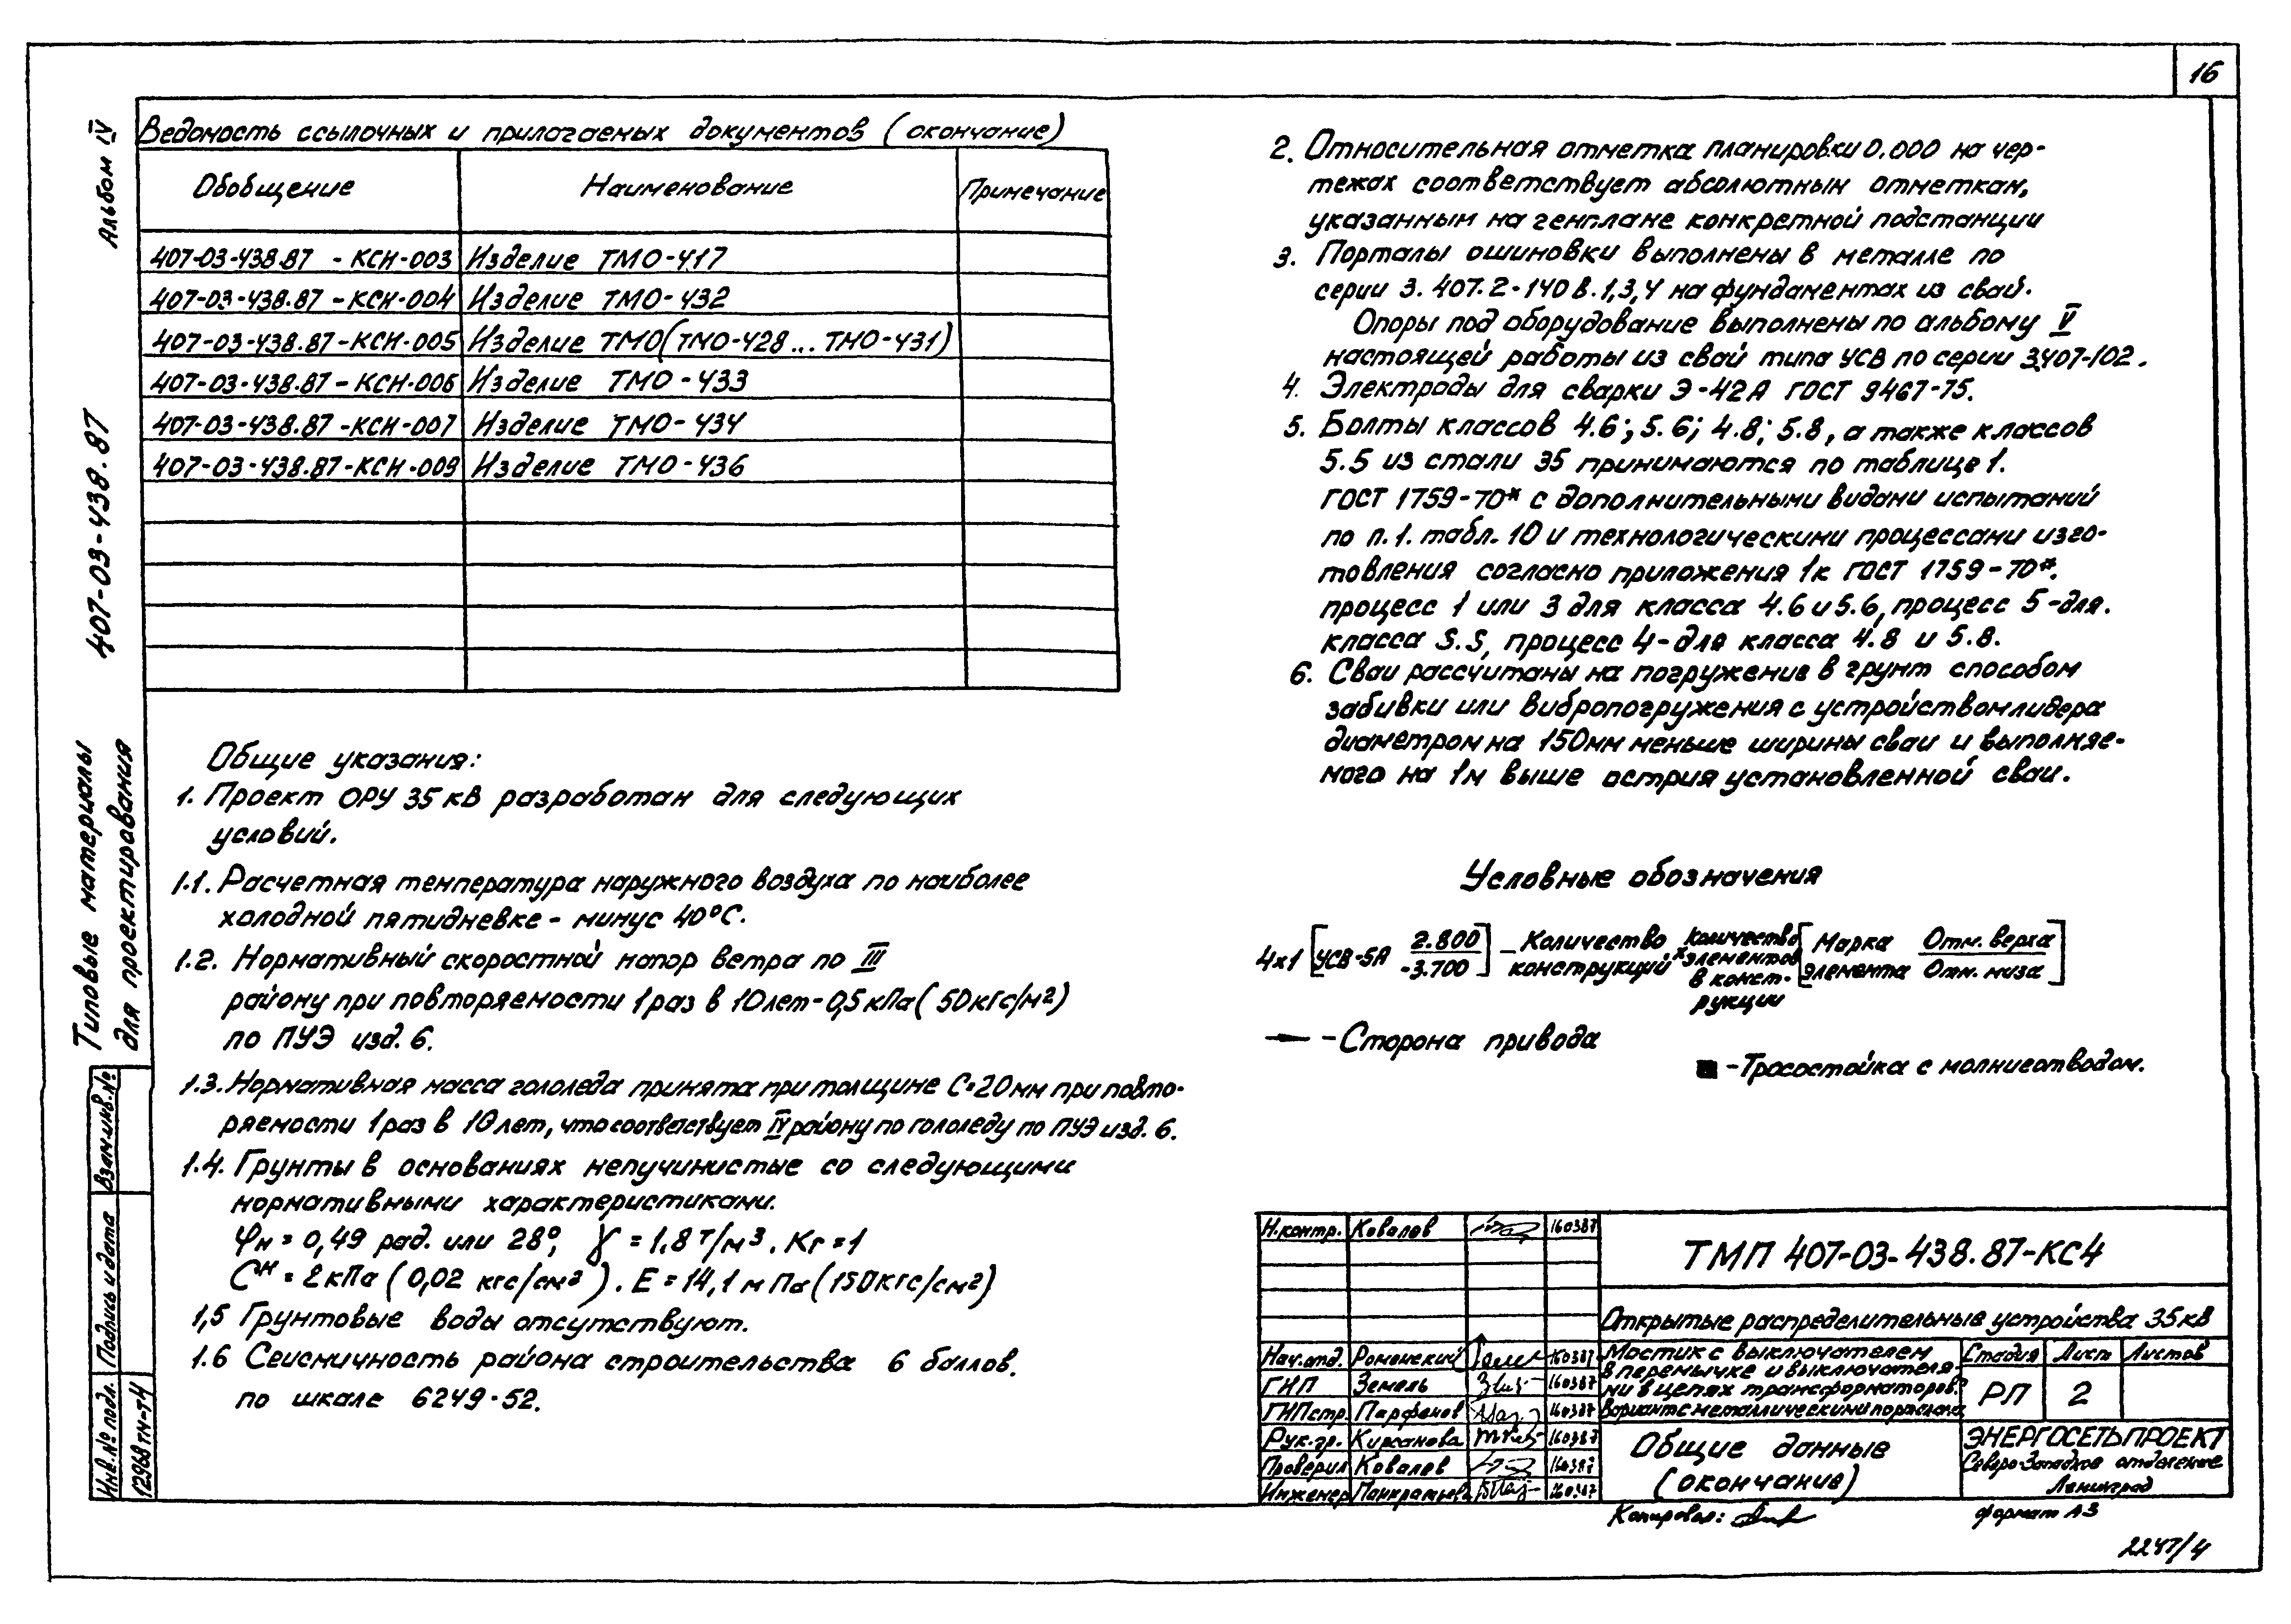 16
Альбом IV
407-03-438.87
Типовые материалы
для проектирования
Взам.инв.№
Подпись и дата
Инв.№ подл.
12968тм-т4
Ведомость ссылочных и прилагаемых документов (окончание)
Обобщение Наименование Примечание
407-03-438.87 - КСИ-003 Изделие ТМО-417
407-03-438.87 - КСИ-004 Изделие ТМО-432
407-03-438.87-КСИ-005 Изделие ТМО(ТМО-428... ТМО-431)
407-03-438.87-КСИ-006 Изделие ТМО-433
407-03-438.87-КСИ-007 Изделие ТМО-434
407-03-438.87-КСИ-009 Изделие ТМО-436
Общие указания:
1. Проект ОРУ 35кВ разработан для следующих
условий.
1.1. Расчетная температура наружного воздуха по наиболее
холодной пятидневке - минус 40°С.
1.2. Нормативный скоростной напор ветра по III
району при повторяемости 1раз в 10лет-0,5кПа(50кгс/м²)
по ПУЭ изд. 6.
1.3. Нормативная масса гололеда принята при толщине С=20мм при повто-
ряемости 1раз в 10лет, что соответствует IV району по гололеду по ПУЭ изд. 6.
1.4. Грунты в основаниях непучинистые со следующими
нормативными характеристиками.
φн = 0,49 рад. или 28°, γ = 1,8 т/м³. Кг=1
Сн = 2кПа (0,02 кгс/см³). Е = 14,1 мПа (150кгс/см²)
1,5 Грунтовые воды отсутствуют.
1.6 Сейсмичность района строительства 6 баллов.
по шкале 6249-52.
2. Относительная отметка планировки 0.000 на чер-
тежах соответствует абсолютным отметкам,
указанным на генплане конкретной подстанции
3. Порталы ошиновки выполнены в металле по
серии 3.407.2-140 в.1,3,4 на фундаментах из свай.
Опоры под оборудование выполнены по альбому V
настоящей работы из свай типа УСВ по серии 3.407-102.
4. Электроды для сварки Э-42А ГОСТ 9467-75.
5. Болты классов 4.6; 5.6; 4.8; 5.8, а также классов
5.5 из стали 35 принимаются по таблице 1.
ГОСТ 1759-70* с дополнительными видами испытаний
по п.1. табл. 10 и технологическими процессами изго-
товления согласно приложения 1к ГОСТ 1759-70*.
процесс 1 или 3 для класса 4.6 и 5.6, процесс 5-для.
класса 5.5, процесс 4-для класса 4.8 и 5.8.
6. Сваи рассчитаны на погружение в грунт способом
забивки или вибропогружения с устройством лидера
диаметром на 150мм меньше ширины сваи и выполняе-
мого на 1м выше острия установленной сваи.
Условные обозначения
4х1 [УСВ-5А 2.800/-3.700] - Количество конструкций х количество элементов в конст-рукции [Марка элемента Отм. верха/Отм. низа]
- Сторона привода
- Тросостойка с молниеотводом.
Н.контр. Ковалов 160387
Нач.отд. Роменский 160387
ГИП Земель 160387
ГИПстр. Парфенов 160387
Рук.гр. Кирсанова 160387
Проверил Ковалов 160387
Инженер Панкратьева 160387
ТМП 407-03-438.87-КС4
Открытые распределительные устройства 35кВ
Мостик с выключателем
в перемычке и выключателя-
ми в цепях трансформаторов.
Вариант с металлическими порталами
Стадия Лист Листов
РП 2
Общие данные
(окончание)
ЭНЕРГОСЕТЬПРОЕКТ
Северо-Западное отделение
Ленинград
Копировал:
формат А3
2247/4